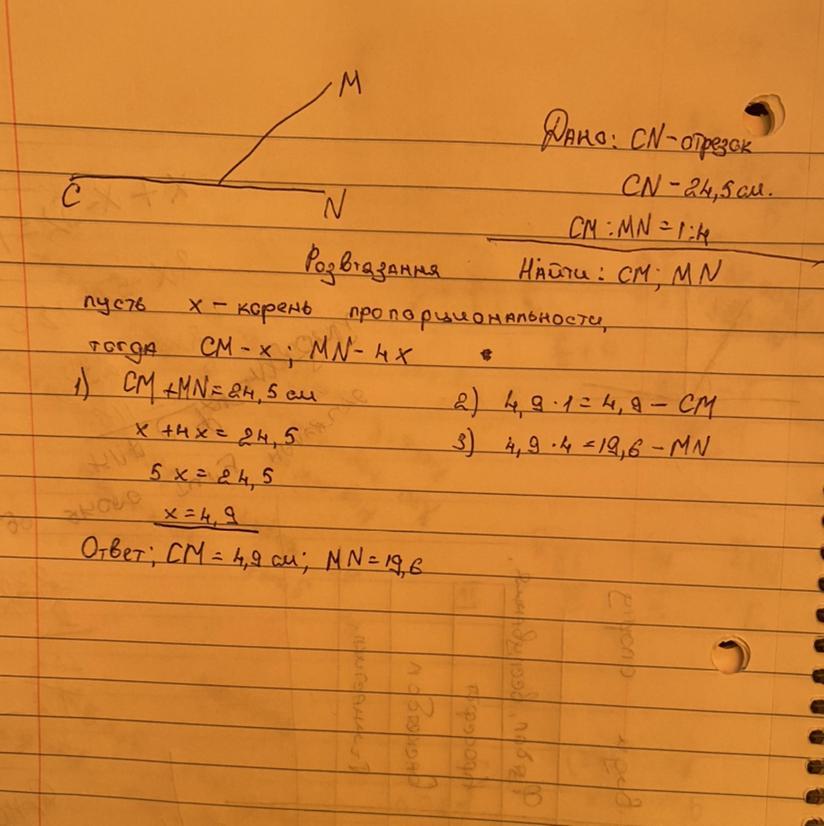 M
Дано: CN-отрезок
C
N
CN - 24,5 см.
CM : MN = 1:4
Розвтазання
Найти: CM; MN
пусть x - корень пропорциональности,
тогда CM - x ; MN - 4x
1) CM + MN = 24,5 см
2) 4,9 · 1 = 4,9 - CM
x + 4x = 24,5
3) 4,9 · 4 = 19,6 - MN
5x = 24,5
x = 4,9
Ответ; CM = 4,9 см; MN = 19,6